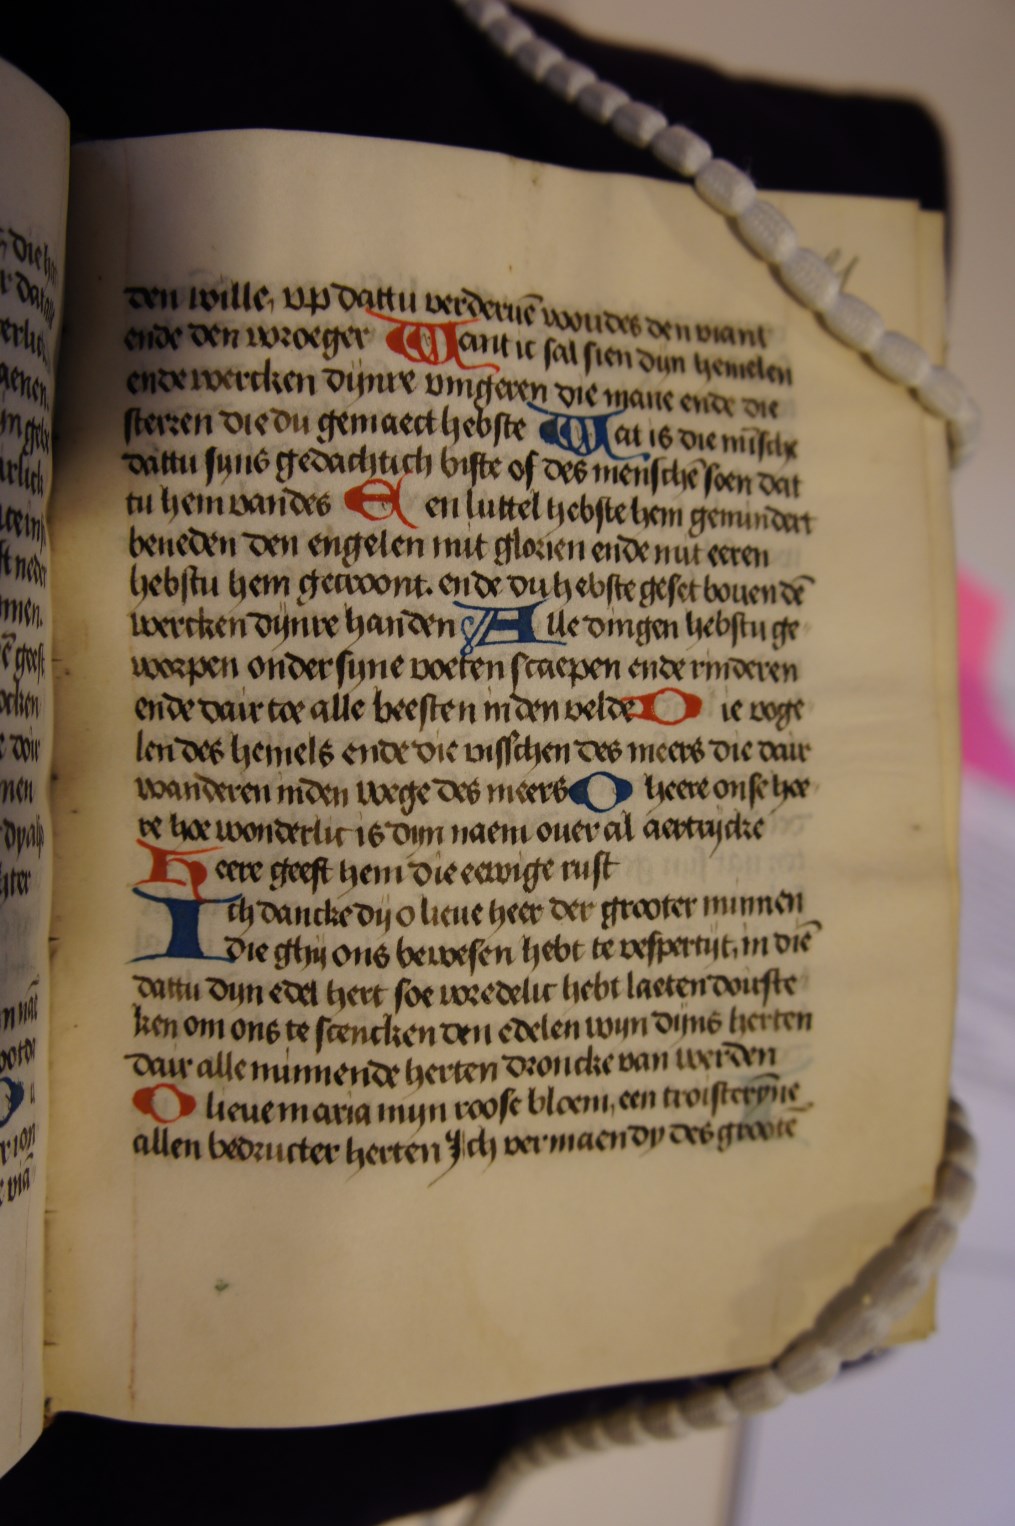 den wille, vp dattu verderuē woudes den viant
ende den vroeger Want ic sal sien dijn hemelen
ende wercken dijnre vingeren die mane ende die
sterren die du gemaect hebste Wat is die mīsche
dattu sijns gedachtich biste of des menschē soen dat
tu hem vandes Een luttel hebste hem gemindert
beneden den engelen mit glorien ende mit eeren
hebstu hem gecroont. ende du hebste geset bouen dē
wercken dijnre handen Alle dingen hebstu ge
worpen onder sijne voeten scaepen ende rinderen
ende dair toe alle beesten inden velde Die voge
len des hemels ende die visschen des meers die dair
wanderen inden wege des meers O heere onse hee
re hoe wonderlic is dijn naem ouer al aertrijcke
Heere geeft hem die eewige rust
Ich dancke dij o lieue heer der grooter minnen
die ghij ons bewesen hebt te vespertijt, in diē
dattu dijn edel hert soe vredelic hebt laeten doirste
ken om ons te scencken den edelen wijn dijns herten
dair alle minnende herten droncke van werden
O lieue maria mijn roose bloem, een troisterȳne
allen bedructer herten Ich vermaen dy des groote